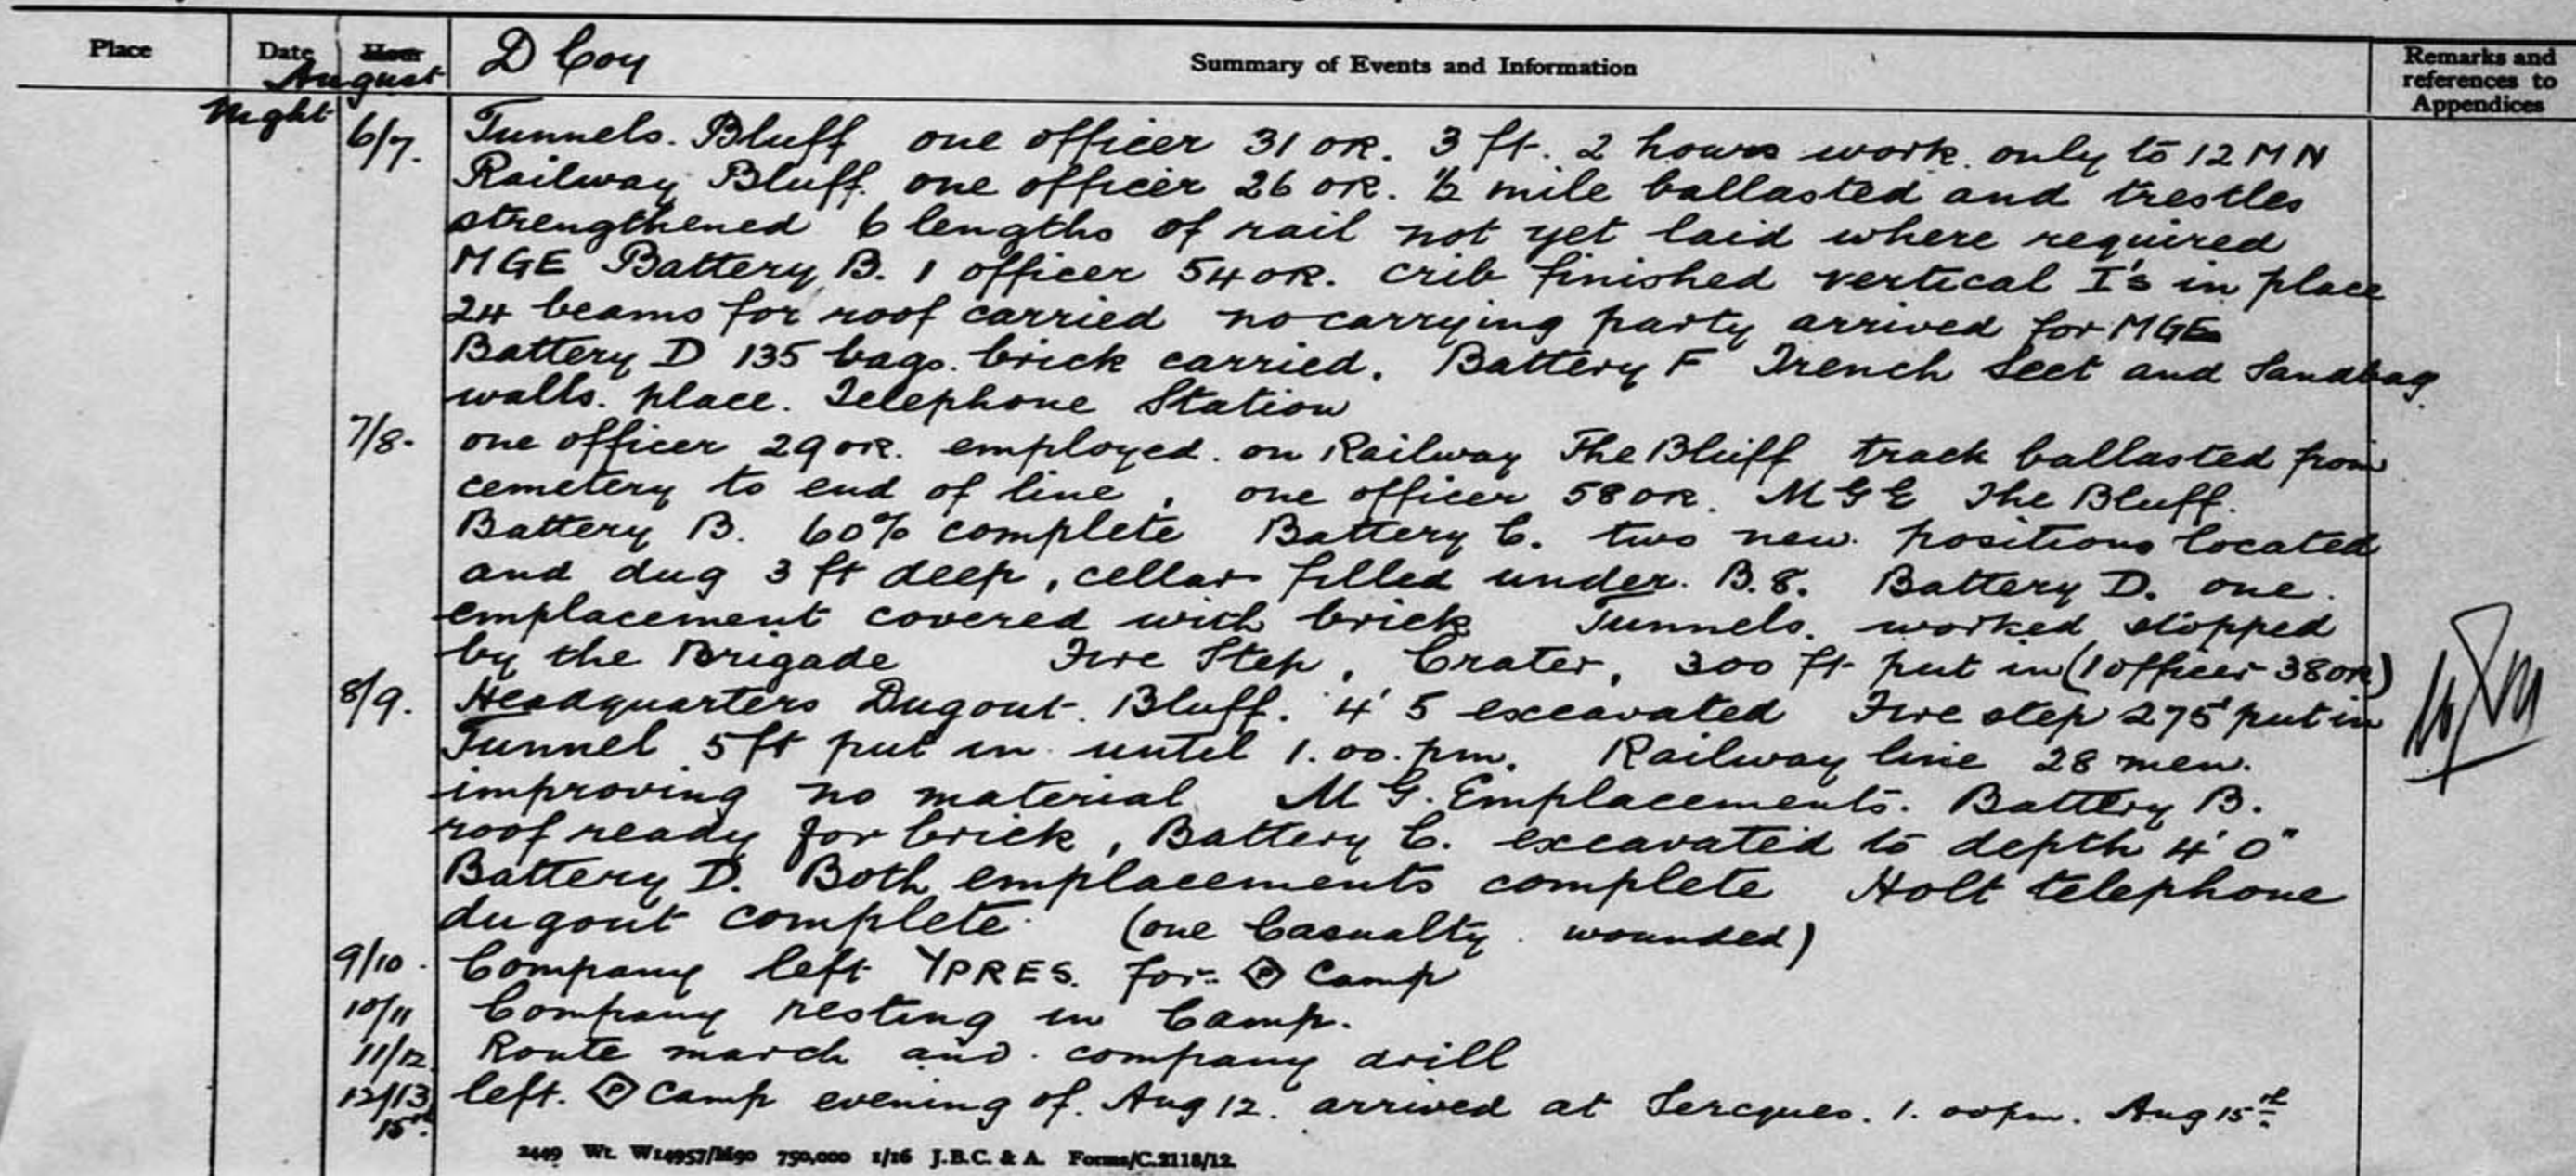 Place Date Hour Summary of Events and Information Remarks and references to Appendices
August D Coy
Night
6/7. Tunnels. Bluff one officer 31 OR. 3 ft. 2 hours work. only to 12 MN
Railway Bluff. one officer 26 OR. ½ mile ballasted and trestles
strengthened 6 lengths of rail not yet laid where required
MGE Battery B. 1 officer 54 OR. crib finished vertical I's in place
24 beams for roof carried no carrying party arrived for MGE
Battery D 135 bags. brick carried. Battery F Trench and Sandbag
walls. place. Telephone Station
7/8. one officer 29 OR. employed. on Railway The Bluff track ballasted from
cemetery to end of line, one officer 58 OR. MGE The Bluff.
Battery B. 60% complete Battery C. two new positions located
and dug 3 ft deep, cellar filled under. B.8. Battery D. one.
emplacement covered with brick Tunnels. worked stopped
by the Brigade Fire Step, Crater, 300 ft put in (1 officer 38 OR)
8/9. Headquarters Dugout. Bluff. 4' 5 excavated Fire step 275' put in
Tunnel 5ft put in until 1.00.pm. Railway line 28 men.
improving no material M G. Emplacements. Battery B.
roof ready for brick, Battery C. excavated to depth 4' 0"
Battery D. Both emplacements complete Holt telephone
dugout complete (one Casualty. wounded)
9/10. Company left YPRES. for P Camp
10/11 Company resting in Camp.
11/12 Route march and. company drill
12/13 left. P Camp evening of. Aug 12. arrived at Sercques. 1.00pm. Aug 15th
15th.
2449 Wt. W14957/M90 750,000 1/16 J.B.C. & A. Forms/C.2118/12.